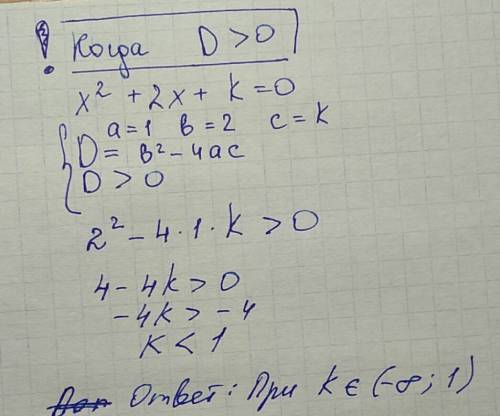 ! Когда D > 0
x² + 2x + k = 0
a = 1 в = 2 c = k
D = в² - 4ac
D > 0
2² - 4 · 1 · k > 0
4 - 4k > 0
-4k > -4
k < 1
Ответ: При k ∈ (-∞; 1)